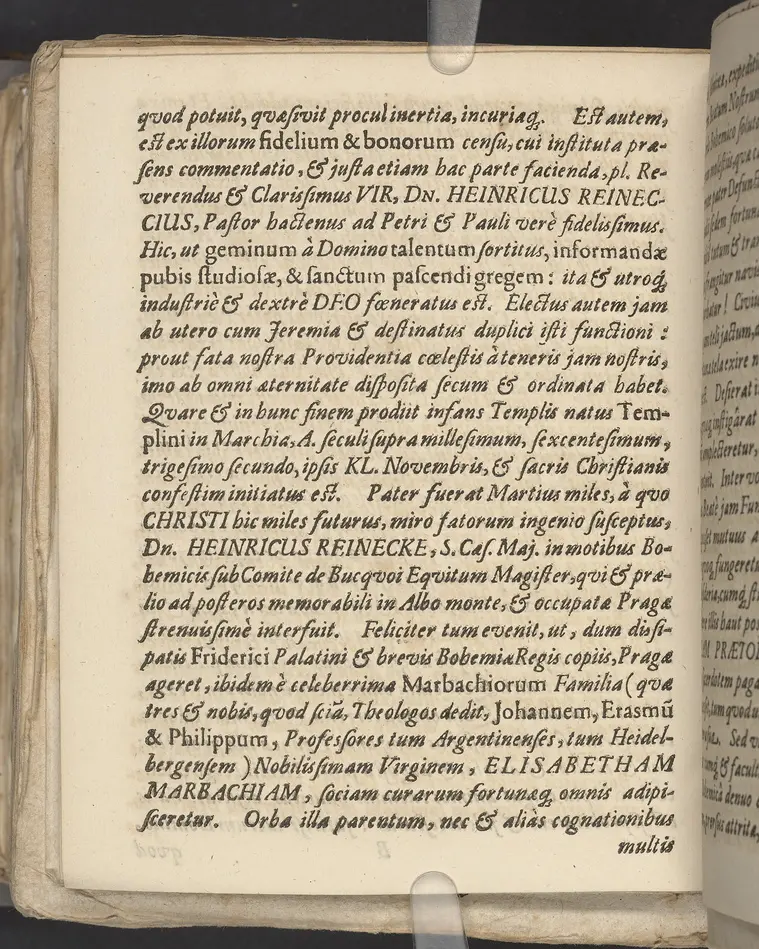 qvod potuit, qvæsivit procul inertia, incuriaq;. Est autem,
est ex illorum fidelium & bonorum censu, cui instituta præ-
sens commentatio, & justa etiam hac parte facienda, pl. Re-
verendus & Clarissimus VIR, DN. HEINRICUS REINEC-
CIUS, Pastor hactenus ad Petri & Pauli verè fidelissimus.
Hic, ut geminum à Domino talentum sortitus, informandæ
pubis studiosæ, & sanctum pascendi gregem: ita & utroq;
industriè & dextrè DEO fœneratus est. Electus autem jam
ab utero cum Jeremia & destinatus duplici isti functioni:
prout fata nostra Providentia cœlestis à teneris jam nostris,
imo ab omni æternitate disposita secum & ordinata habet.
Qvare & in hunc finem prodiit infans Templis natus Tem-
plini in Marchia, A. seculi supra millesimum, sexcentesimum,
trigesimo secundo, ipsis KL. Novembris, & sacris Christianis
confestim initiatus est. Pater fuerat Martius miles, à qvo
CHRISTI hic miles futurus, miro fatorum ingenio susceptus,
Dn. HEINRICUS REINECKE, S. Cæs. Maj. in motibus Bo-
hemicis sub Comite de Bucqvoi Eqvitum Magister, qvi & præ-
lio ad posteros memorabili in Albo monte, & occupatæ Pragæ
strenuissimè interfuit. Feliciter tum evenit, ut, dum dissi-
patis Friderici Palatini & brevis Bohemiæ Regis copiis, Pragæ
ageret, ibidem è celeberrima Marbachiorum Familia (qvæ
tres & nobis, qvod sciā, Theologos dedit, Johannem, Erasmū
& Philippum, Professores tum Argentinenses, tum Heidel-
bergensem) Nobilissimam Virginem, ELISABETHAM
MARBACHIAM, sociam curarum fortunæq; omnis adipi-
sceretur. Orba illa parentum, nec & aliàs cognationibus
multis